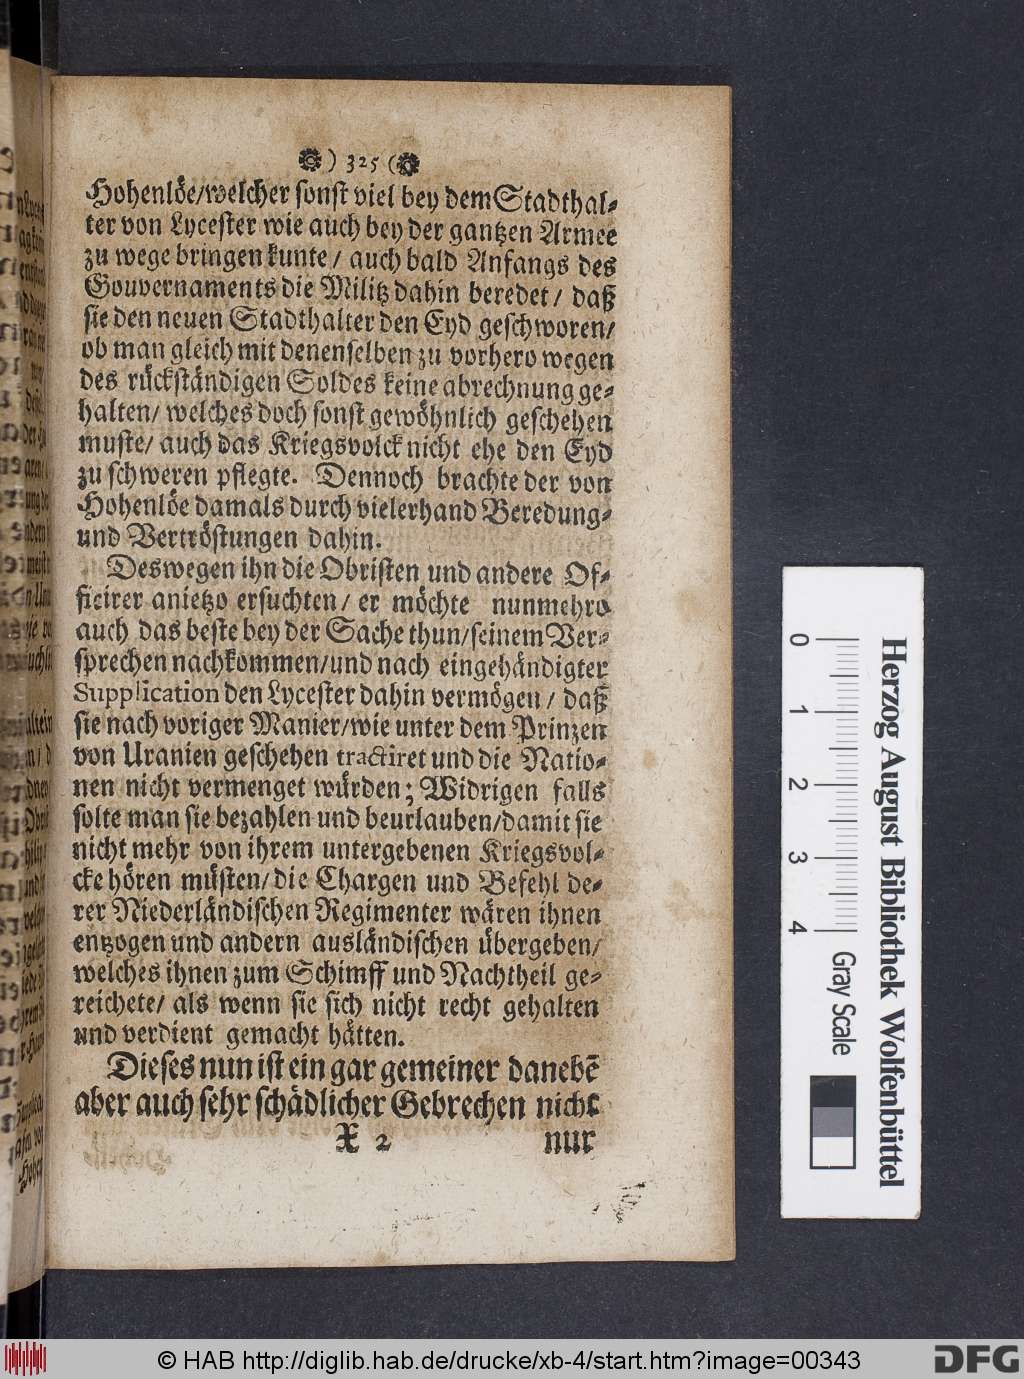 ) 325 (
Hohenlöe/welcher sonst viel bey dem Stadthal-
ter von Lycester wie auch bey der gantzen Armee
zu wege bringen kunte/ auch bald Anfangs des
Gouvernaments die Militz dahin beredet/ daß
sie den neuen Stadthalter den Eyd geschworen/
ob man gleich mit denenselben zu vorhero wegen
des rückständigen Soldes keine abrechnung ge-
halten/ welches doch sonst gewöhnlich geschehen
muste/ auch das Kriegsvolck nicht ehe den Eyd
zu schweren pflegte. Dennoch brachte der von
Hohenlöe damals durch vielerhand Beredung-
und Vertröstungen dahin.
Deswegen ihn die Obristen und andere Of-
ficirer anietzo ersuchten/ er möchte nunmehro
auch das beste bey der Sache thun/seinem Ver-
sprechen nachkommen/und nach eingehändigter
Supplication den Lycester dahin vermögen/ daß
sie nach voriger Manier/wie unter dem Prinzen
von Uranien geschehen tractiret und die Natio-
nen nicht vermenget würden; Widrigen falls
solte man sie bezahlen und beurlauben/damit sie
nicht mehr von ihrem untergebenen Kriegsvol-
cke hören müsten/die Chargen und Befehl de-
rer Niederländischen Regimenter wären ihnen
entzogen und andern ausländischen übergeben/
welches ihnen zum Schimff und Nachtheil ge-
reichete/ als wenn sie sich nicht recht gehalten
und verdient gemacht hätten.
Dieses nun ist ein gar gemeiner danebē
aber auch sehr schädlicher Gebrechen nicht
X 2 nur
0 1 2 3 4
Gray Scale
Herzog August Bibliothek Wolfenbüttel
© HAB http://diglib.hab.de/drucke/xb-4/start.htm?image=00343
DFG